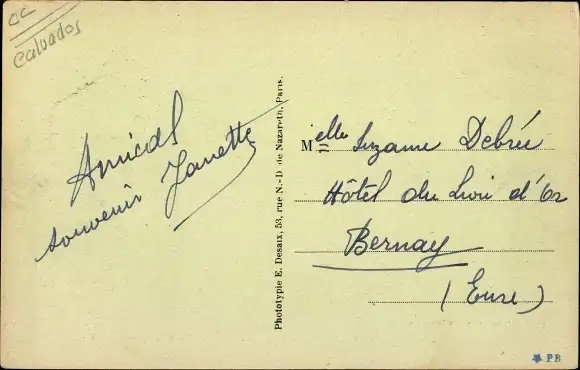 CC
Calvados
Amical
souvenir Janette
Phototypie E. Desaix, 53, rue N.-D. de Nazareth, Paris.
Melle Suzanne Debrée
Hôtel du Lion d'Or
Bernay
(Eure)
PB